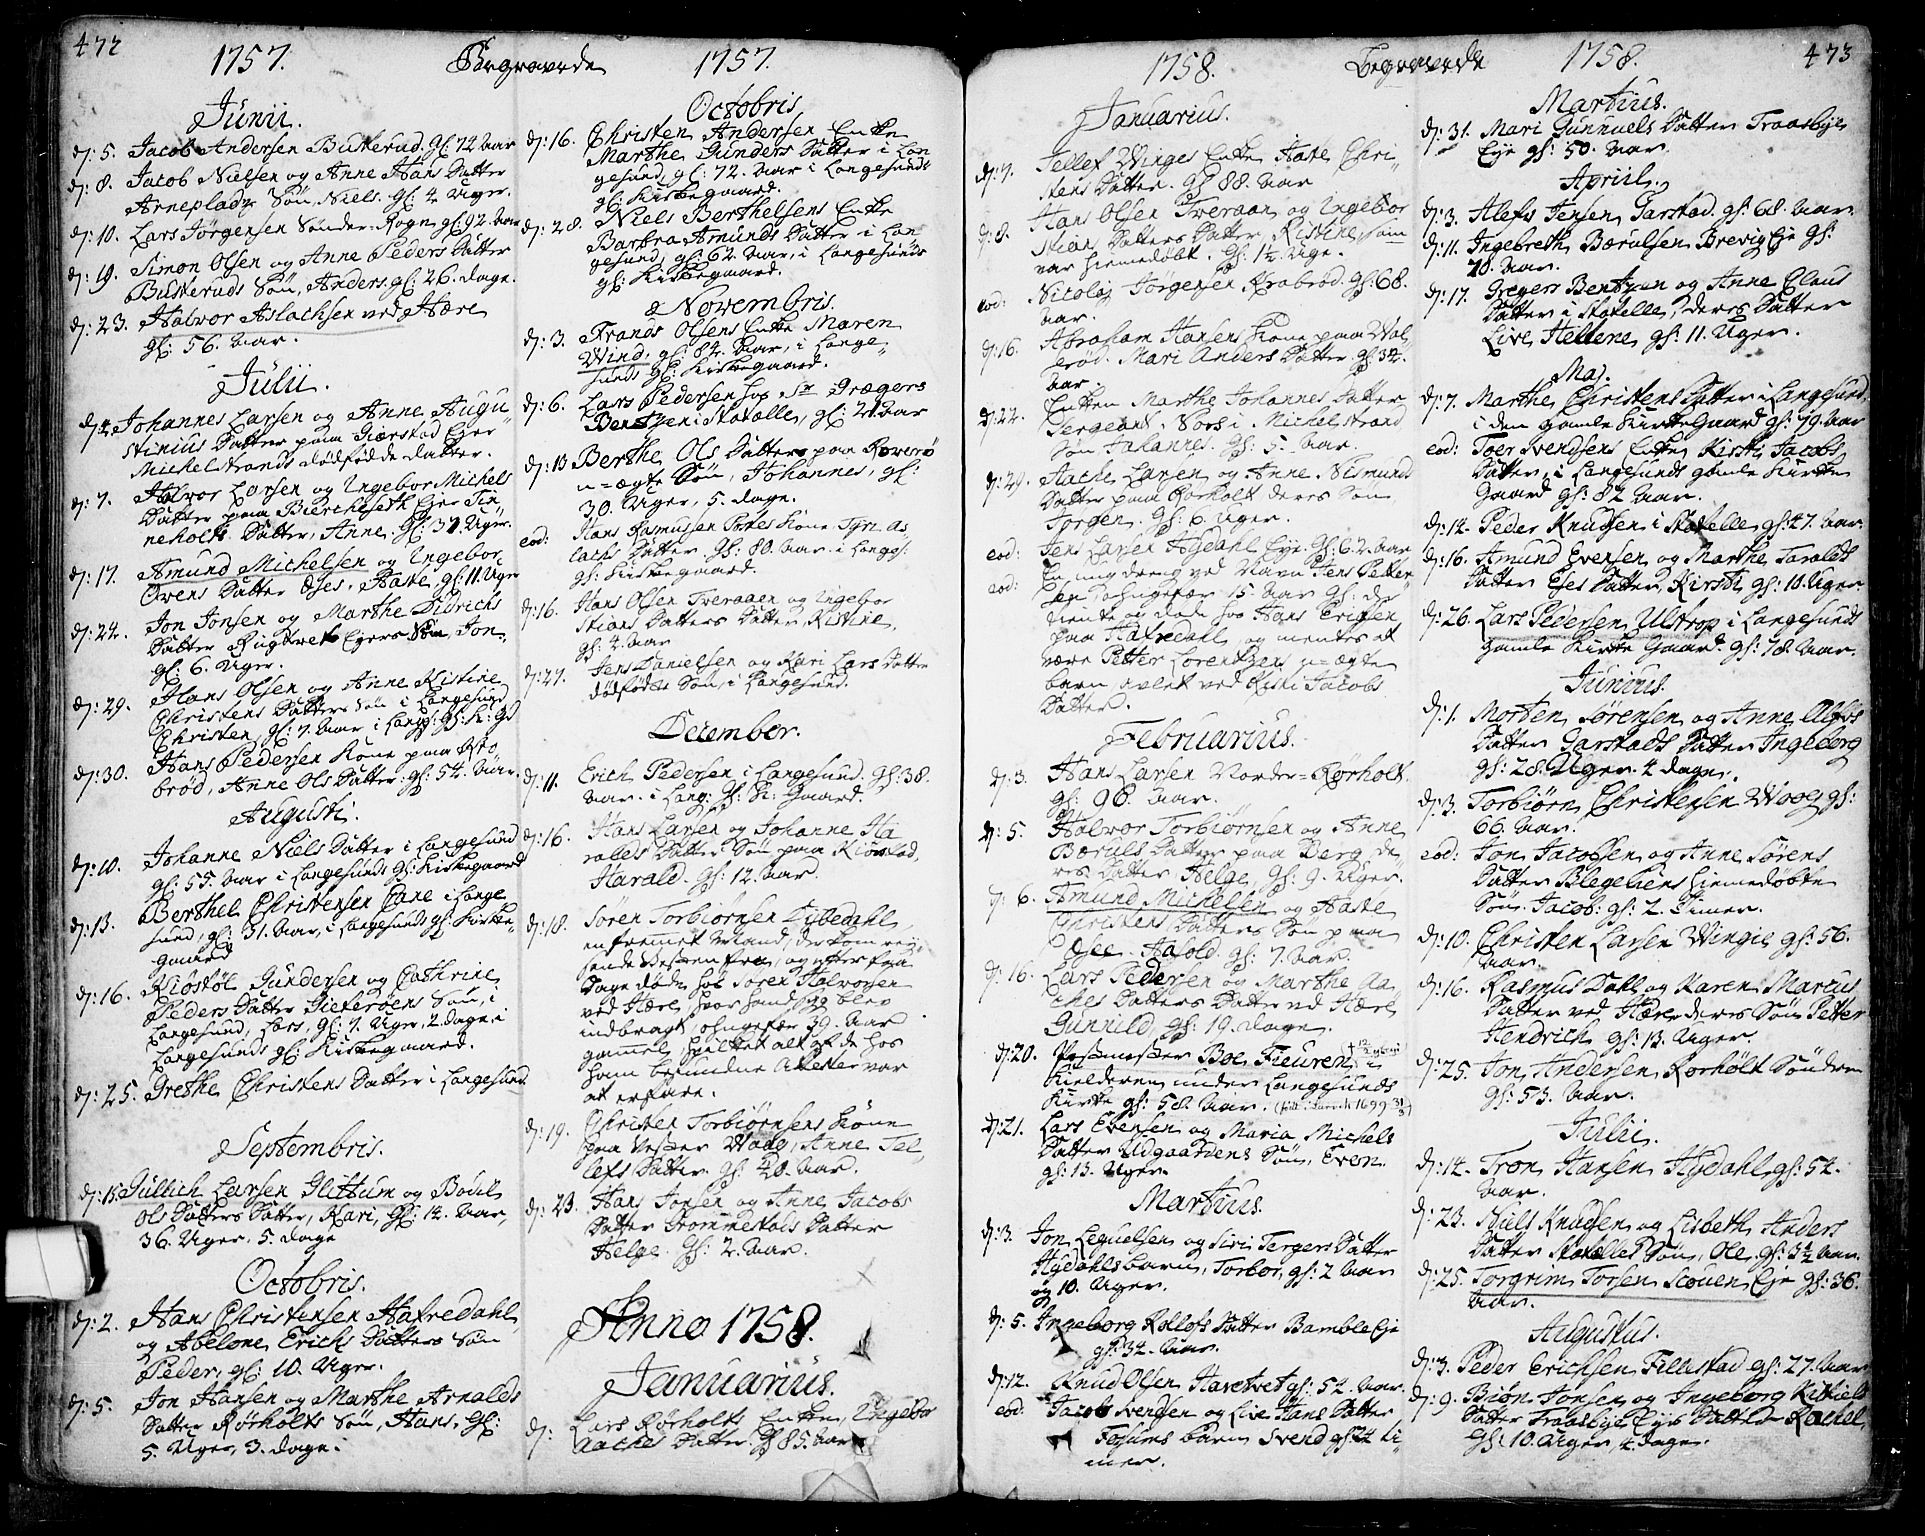 472
1757.
Begravede
1757.
Junii.
d: 5. Jacob Andersen Buskerud. gl: 72 Aar
d: 8. Jacob Nielsen og Anne Hans Datter
Arneplads Søn, Niels. gl: 4 Uger.
d: 10. Lars Jørgensen Sønder-Rogn, gl: 92 Aar
d: 19. Simon Olsen og Anne Peders Datter
Buskeruds Søn, Anders. gl: 26. dage.
d: 23. Halvor Aslachsen ved Hære
gl: 56. Aar.
Julii.
d: 4. Johannes Larsen og Anne Augu-
stinius Datter paa Giærstad Eier
Michelstrands dødfødde datter.
d: 7. Halvor Larsen og Ingebor Michels
Datter paa Bierckeseth Eier Tin
neholts Datter, Anne, gl: 37 Uger.
d: 17. Amund Michelsen og Ingebor
Ovens Datter Oses, Aase, gl: 11 Uger
d: 24. Jon Jonsen og Marthe Didrichs
Datter Eiers Søn, Jon,
gl: 6. Uger.
d: 29. Hans Olsen og Anne Kistine
Christens Datters Søn i Langesund
Christen, gl: 7. Aar i Langs: gl: K: Gd
d: 30. Hans Pedersen Kone paa Kro
brød, Anne Ols Datter. gl: 54. Aar.
Augusti.
d: 10. Johanne Niels Datter i Langesund
gl: 55. Aar i Langesunds gl: Kirkegaard
d: 13. Berthel Christensen Cane i Lange
sund, gl: 31. Aar, i Langesund gl: Kirke-
gaard
d: 16. Kiøstol Gundersen og Cathrine
Peders Datter Søn, i
Langesund, Lars, gl: 7. Uger, 2. dage, i
Langesunds gl: Kirkegaard.
d: 25. Grethe Christens Datter i Langesund.
Septembris.
d: 15. Gullich Larsen Glittum og Bodil
Ols Datters Datter, Kari, gl: 14. Aar,
36. Uger, 5. dage
Octobris.
d: 2. Hans Christensen Hafredahl,
og Abelone Erichs Datters Søn
Peder, gl: 10. Uger.
d: 5. Jon Hansen og Marthe Arnolds
Datter Rørholts Søn, Hans, gl:
5. Uger, 3. dage.
Octobris
d: 16. Christen Andersen Enke
Marthe Gunders Datter i Lan
gesund, gl: 72. Aar i Langesunds
gl: Kirkegaard.
d: 28. Niels Berthelsens Enke
Barbra Amunds Datter i Lan
gesund, gl: 62. Aar, i Langesunds
gl: Kirkegaard.
Novembris.
d: 3. Frands Olsens Enke Maren
Wind, gl: 84. Aar, i Lange-
sunds gl: Kirkegaard.
d: 6. Lars Pedersen hos Sr Grægers
Bentzen i Statelle, gl: 21 Aar
d: 13 Berthe Ols Datters paa Roverø
u-ægte Søn, Johannes, gl:
30. Uger, 5. dage.
eod: Hans Rasmussen Kone Tyri As
lachs Datter. gl: 80. Aar. i Langs:
gl: Kirkegaard.
d: 16. Hans Olsen Tveraaen og Ingebor
Stians Datters Datter, Kistine,
gl: 4. Aar
d: 27. Jens Danielsen og Kari Lars Datter
dødfødt Søn, i Langesund.
December.
d: 11. Erich Pedersen i Langesund. gl: 38.
Aar. i Lang: gl: K: Gaard.
d: 16. Hans Larsen og Johanne Ha
ralds Datter Søn paa Kiønstad,
Harald. gl: 12. Aar.
d: 18. Søren Torbiørnsen Dybedahl,
en fremmet Mand, der kom rei-
sende Vesten fra, og efter faa
Dage døde hos Søren Halvorsen
ved Hære, hvor hand syg blev
indbragt, ohngefær 39. Aar
gammel, hvilket alt af de hos
ham befundne Attester var
at erfare.
d: 19. Christen Torbiørnsens Kone
paa Vester Waag, Anne Tel-
lefs Datter. gl: 40. Aar.
d: 23. Hans Jonsen og Anne Jacobs
Datter Grommestads Datter
Helge. gl: 2. Aar.
Anno 1758.
Januarius.
d: Lars Rørholts Enke, Ingebor
Aaches Datter. gl: 85. Aar
1758.
Begravede
1758.
473
Januarius.
d: 7. Tellef Winges Enke Aase Chri-
stens Datter. gl: 88. Aar
d: 8. Hans Olsen Tveraaen og Ingebor
Stians Datters Datter, Kistine, som
var hiemedøbt. gl: 1½ Uge.
eod: Nicolai Jørgensen Krabrød. gl: 68.
Aar.
d: 16. Abraham Hansens Kone paa Val
lerød. Mari Anders Datter. gl: 34.
Aar.
d: 22. Enken Marthe Johannes Datter
Sergeant i Michelstrand
Søn Johannes. gl: 5. Aar.
d: 29. Aache Larsen og Anne Nirmunds
Datter paa Rørholt deres Søn
Jørgen. gl: 6. Uger.
eod: Jens Larsen Hydahl Eje. gl: 62. Aar
eod: En ung dreng ved Navn Jens Petter
sen ohngefær 15. Aar gl: der
tiente og døde hos Hans Erichsen
paa Hafredahl, og mentes at
være Petter Lorentzens u-ægte
barn, avlet ved Kisti Jacobs
Datter.
Februarius.
d: 3. Hans Larsen Norder-Rørholt.
gl: 96. Aar.
d: 5. Halvor Torbiørnsen og Anne
Bæruls Datter paa Berg de-
res Datter Helge, gl: 9. Uger.
d: 6. Amund Michelsen og Aase
Christens Datters Søn paa
Osee. Hasold. gl: 7. Aar.
d: 16. Lars Pedersen og Marthe Aa
ches Datters Datter ved Hære
Gunnild, gl: 19. Dage.
d: 20. Postmester Boe Fieuren i
Kielderen under Langesunds
Kirke gl: 58. Aar. (født i 1699 31/3)
d: 21. Lars Evensen og Maria Michels
Datter Udgaardens Søn, Even.
gl: 13. Uger.
Martius.
d: 3. Jon Leguelsen og Siri Tergers Datter
Hydahls barn, Torbor, gl: 2 Aar
og 10. Uger.
d: 5. Ingeborg Rollofs Datter Bamble Eje
gl: 34. Aar.
d: 12. Knud Olsen Haretvet gl: 54. Aar.
eod: Jacob Svendsen og Live Hans Datter
Fosums barn Svend gl: 24 ti-
mer.
Martius.
d: 31. Mari Gunnuels Datter Traasbye
Eje gl: 50. Aar.
April.
d: 3. Alefs Jensen Garstad. gl: 68. Aar.
d: 11. Ingebreth Bærulsen Brevig Eje gl:
70. Aar.
d: 17. Gregers Bentzen og Anne Claus
Datter i Statelle, deres Datter
Live Hellene, gl: 11. Uger.
Maj.
d: 7. Marthe Christens Datter i Langesund,
i den gamle Kirke Gaard gl: 79. Aar
eod: Toer Svendsens Enke, Kisti Jacobs
Datter, i Langesunds gamle Kirke
Gaard gl: 82 Aar.
d: 14. Peder Knudsen i Statelle, gl: 47. Aar.
d: 16. Amund Evensen og Marthe Taralds
Datter Eses Datter, Kirsti, gl: 10. Uger
d: 26. Lars Pedersen Ulstrop i Langesunds
gamle Kirke Gaard. gl: 78. Aar.
Junius.
d: 1. Morten Sørensen og Anne Alefs
Datter Garstads Datter Ingeborg
gl: 28. Uger. 4 dage.
d: 3. Torbiørn Christensen Woog gl:
66. Aar.
eod: Jon Jacobsen og Anne Sørens
Datter Blegebens hiemedøbte
Søn. Jacob: gl: 2. Timer.
d: 10. Christen Larsen Wingie gl: 56.
Aar.
d: 16. Rasmus Dahl og Karen Marcus
Datter ved Hære deres Søn Petter
Hendrich gl: 13. Uger.
d: 25. Jon Andersen Rørholt Søndre
gl: 53. Aar.
Julii.
d: 14. Tron Hansen Hydahl gl: 54.
Aar.
d: 23. Niels Knudsen og Lisbeth Anders
Datter Statelles Søn, Ole, gl: 3½ Aar.
d: 25. Torgrim Torsen Scouen Eje gl: 36.
Aar.
Augustus.
d: 3. Peder Erichsen Fillestad gl: 27. Aar
d: 9. Biøn Jonsen og Ingeborg Kittiels
Datter Traasbye Eje Datter Rachel,
gl: 10. Uger, 4. dage.